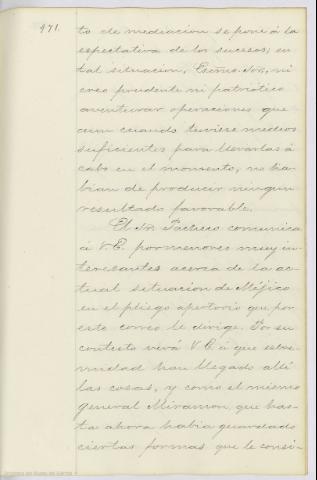 471.
to de mediacion se poní á la
espectativa de los sucesos; en
tal situacion, Escmo. Sor, ni
creo prudente ni patriótico
aventurar operaciones que
aun cuando tuviese medios
suficientes para llevarlas á
cabo en el momento, no ha-
bian de producir ningun
resultado favorable.
El Sr. Pacheco comunica
á V.E. pormenores muy in-
teresantes acerca de la ac-
tual situacion de Méjico
en el pliego apertorio que por
este correo le dirige. Por su
contesto verá V.E. á que estre-
midad han llegado allí
las cosas, y como el mismo
general Miramon, que has-
ta ahora habia guardado
ciertas formas que le consi-